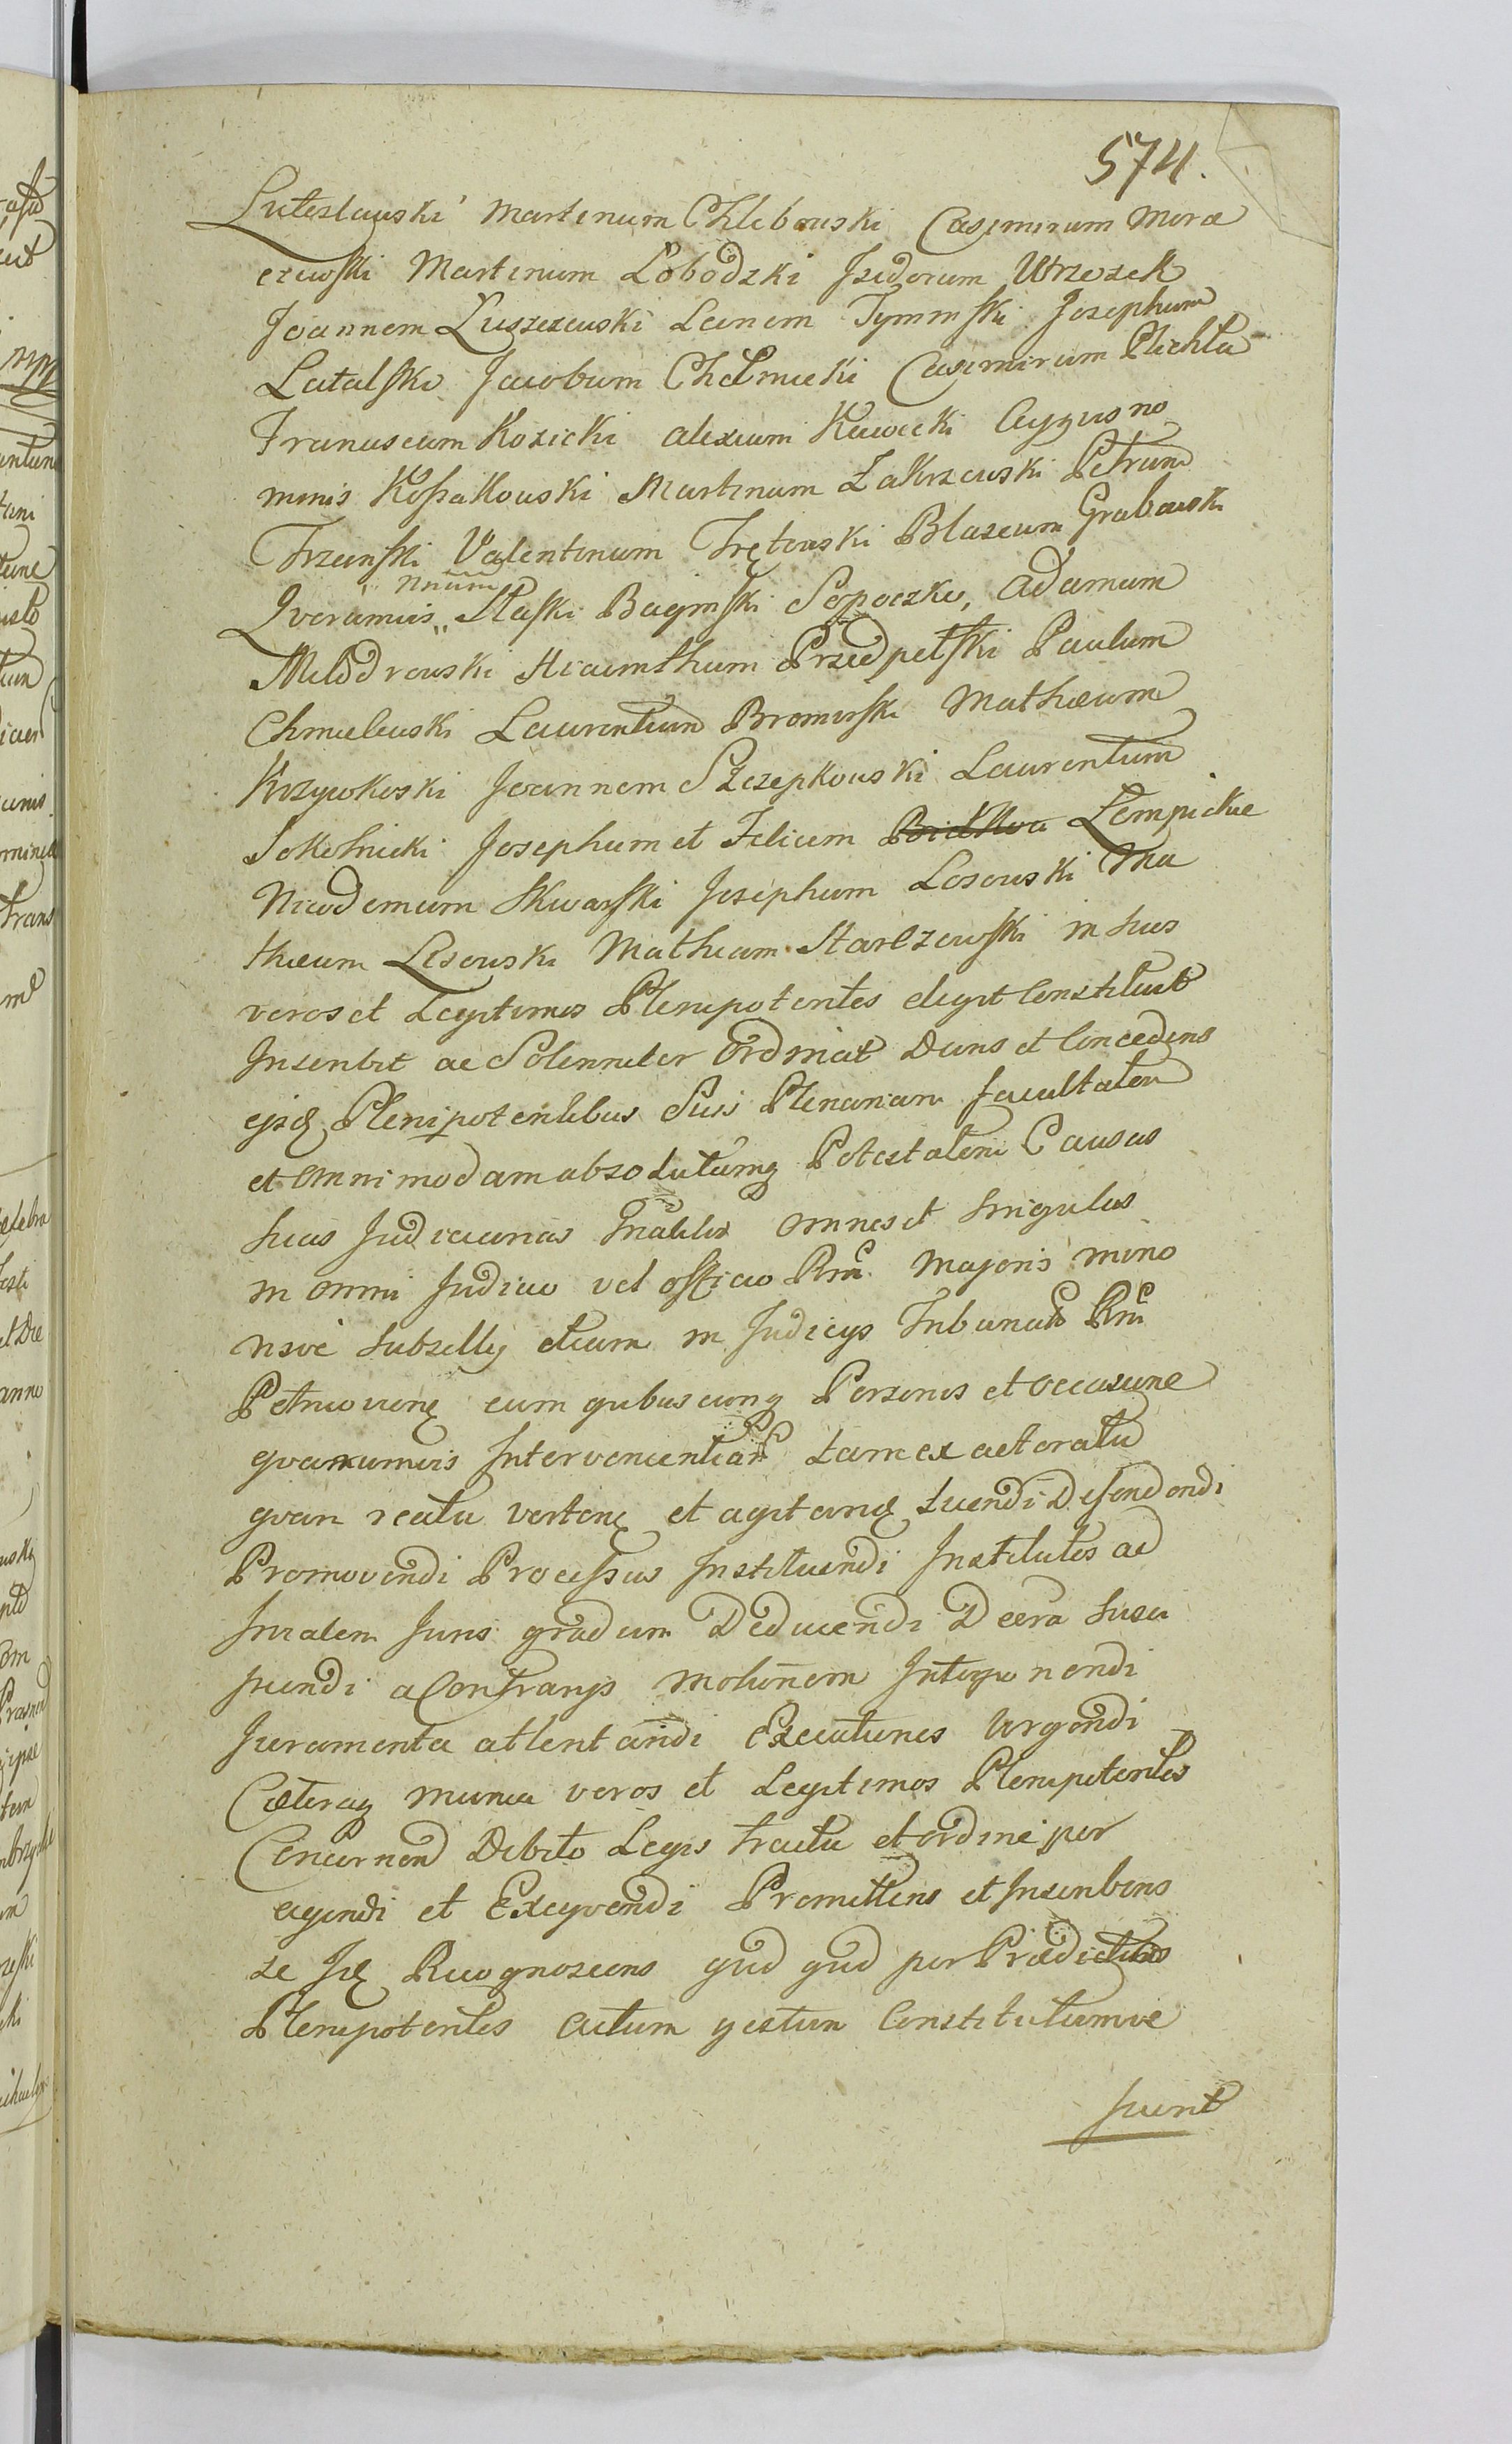 574.
Lutosławski Martinum Chlebowski Casimirum Mora
czewski Martinum Łobodzki Isidorum Wrzosek
Joannem Łuszczewski Leonem Tymiński Josephum
Latalski Jacobum Chełmicki Casimirum Plichta
Franciscum Kozicki Alexium Kawecki Cujusno
minis Kossakowski Martinum Zakrzewski Petrum
Trzcinski Valentinum Trętowski Blasium Grabowski
Nnum
Qvorumvis Staski Baginski Sopoczko, Adamum
Młodrowski Hiacinthum Przedpełski Paulum
Chmielewski Laurentium Bromirski Mathæum
Krzywkoski Joannem Szczepkowski Laurentium
Sokolnicki Josephum et Felicem Łempickie
Nicodemum Skwarski Josephum Łosowski Ma
thæum Lisowski Mathæum Starczewski in suos
veros et Legitimos Plenipotentes eligit Constituit
Inscribit ac Solenniter Ordinat Dans et Concedens
ejsd Plenipotentibus Suis Plenariam facultatem
et omnimodam absolutamq Potestatem Causas
suas Judiciarias Gnaliter omnes et singulas
in omni Judicio vel officio Rni Majoris mino
risve subsellij etiam in Judicijs Tribunal Rni
Petricovien cum qvibuscunq Personis et occasione
qvarumvis Intervenientiarum tam ex actoratu
qvam reatu verten et agitand tuendi Defendendi
Promovendi Processus Instituendi Institutos ad
finalem Juris gradum Deducendi Decreta susci
piendi a Contrarijs motionem Interponendi
Juramenta attentandi Executiones Urgendi
Cæteraq munia veros et Legitimos Plenipotentes
Concernen Debito Legis tractu et ordine per
agendi et Exeqvendi Promittens et Inscribens
se Recognoscens qvid qvid per Prædictos
Plenipotentes actum gestum Constitutumve
fuerit